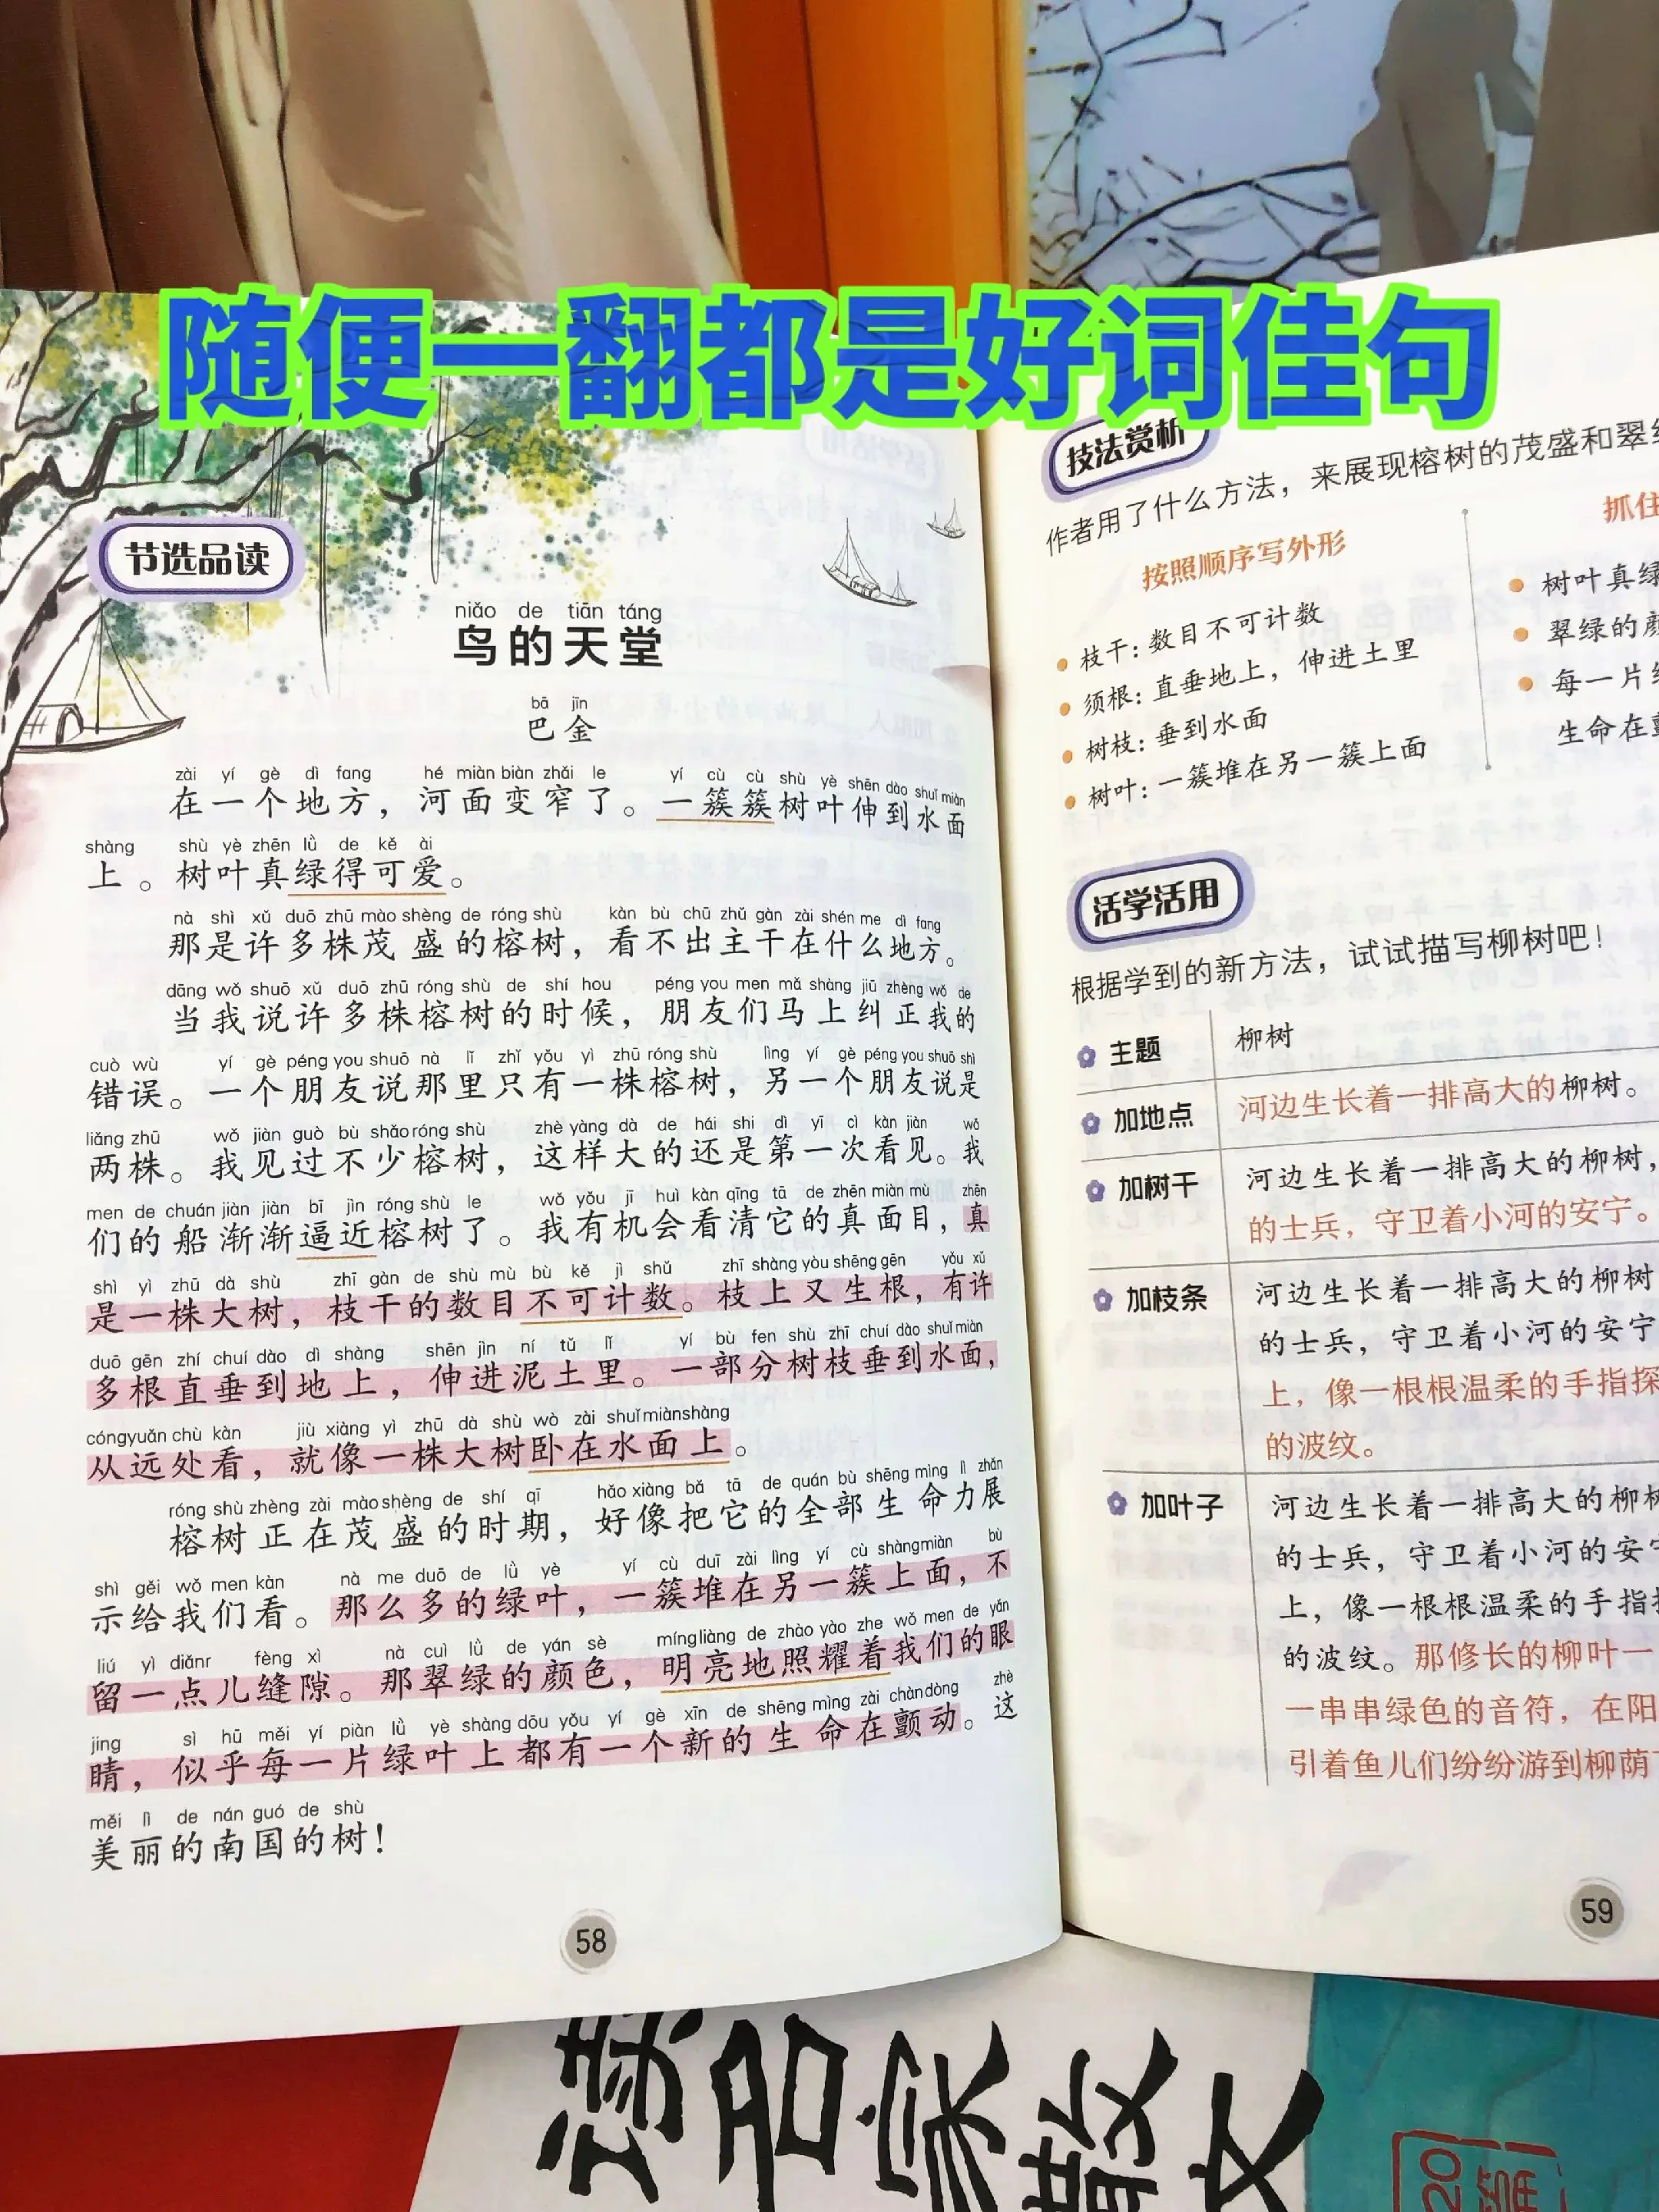 随便一翻都是好词佳句
节选品读
niǎo de tiān táng
鸟的天堂
bā jīn
巴金
zài yí gè dì fang hé miàn biàn zhǎi le yí cù cù shù yè shēn dào shuǐ miàn
在一个地方，河面变窄了。一簇簇树叶伸到水面
shàng shù yè zhēn lǜ de kě ài
上。树叶真绿得可爱。
nà shì xǔ duō zhū mào shèng de róng shù kàn bù chū zhǔ gàn zài shén me dì fang
那是许多株茂盛的榕树，看不出主干在什么地方。
dāng wǒ shuō xǔ duō zhū róng shù de shí hou péng you men mǎ shàng jiū zhèng wǒ de
当我说许多株榕树的时候，朋友们马上纠正我的
cuò wù yí gè péng you shuō nà lǐ zhǐ yǒu yì zhū róng shù lìng yí gè péng you shuō shì
错误。一个朋友说那里只有一株榕树，另一个朋友说是
liǎng zhū wǒ jiàn guò bù shǎo róng shù zhè yàng dà de hái shi dì yī cì kàn jiàn wǒ
两株。我见过不少榕树，这样大的还是第一次看见。我
men de chuán jiàn jiàn bī jìn róng shù le wǒ yǒu jī huì kàn qīng tā de zhēn miàn mù zhēn
们的船渐渐逼近榕树了。我有机会看清它的真面目，真
shì yì zhū dà shù zhī gàn de shù mù bù kě jì shǔ zhī shàng yòu shēng gēn yǒu xǔ
是一株大树，枝干的数目不可计数。枝上又生根，有许
duō gēn zhí chuí dào dì shàng shēn jìn ní tǔ lǐ yí bù fen shù zhī chuí dào shuǐ miàn
多根直垂到地上，伸进泥土里。一部分树枝垂到水面，
cóng yuǎn chù kàn jiù xiàng yì zhū dà shù wò zài shuǐ miàn shàng
从远处看，就像一株大树卧在水面上。
róng shù zhèng zài mào shèng de shí qī hǎo xiàng bǎ tā de quán bù shēng mìng lì zhǎn
榕树正在茂盛的时期，好像把它的全部生命力展
shì gěi wǒ men kàn nà me duō de lǜ yè yí cù duī zài lìng yí cù shàng miàn bù
示给我们看。那么多的绿叶，一簇堆在另一簇上面，不
liú yì diǎnr fèng xì nà cuì lǜ de yán sè míng liàng de zhào yào zhe wǒ men de yǎn
留一点儿缝隙。那翠绿的颜色，明亮地照耀着我们的眼
jing sì hū měi yí piàn lǜ yè shàng dōu yǒu yí gè xīn de shēng mìng zài chàn dòng zhè
睛，似乎每一片绿叶上都有一个新的生命在颤动。这
měi lì de nán guó de shù
美丽的南国的树！
58
技法赏析
作者用了什么方法，来展现榕树的茂盛和翠
按照顺序写外形
枝干：数目不可计数
须根：直垂地上，伸进土里
树枝：垂到水面
树叶：一簇堆在另一簇上面
抓住
树叶真绿
翠绿的
每一片
生命在
活学活用
根据学到的新方法，试试描写柳树吧！
主题 柳树
加地点 河边生长着一排高大的柳树。
加树干 河边生长着一排高大的柳树，
的士兵，守卫着小河的安宁。
加枝条 河边生长着一排高大的柳树
的士兵，守卫着小河的安宁
上，像一根根温柔的手指探
的波纹。
加叶子 河边生长着一排高大的柳树
的士兵，守卫着小河的安宁
上，像一根根温柔的手指
的波纹。那修长的柳叶一
一串串绿色的音符，在阳
引着鱼儿们纷纷游到柳荫
59
读名家散文
20篇